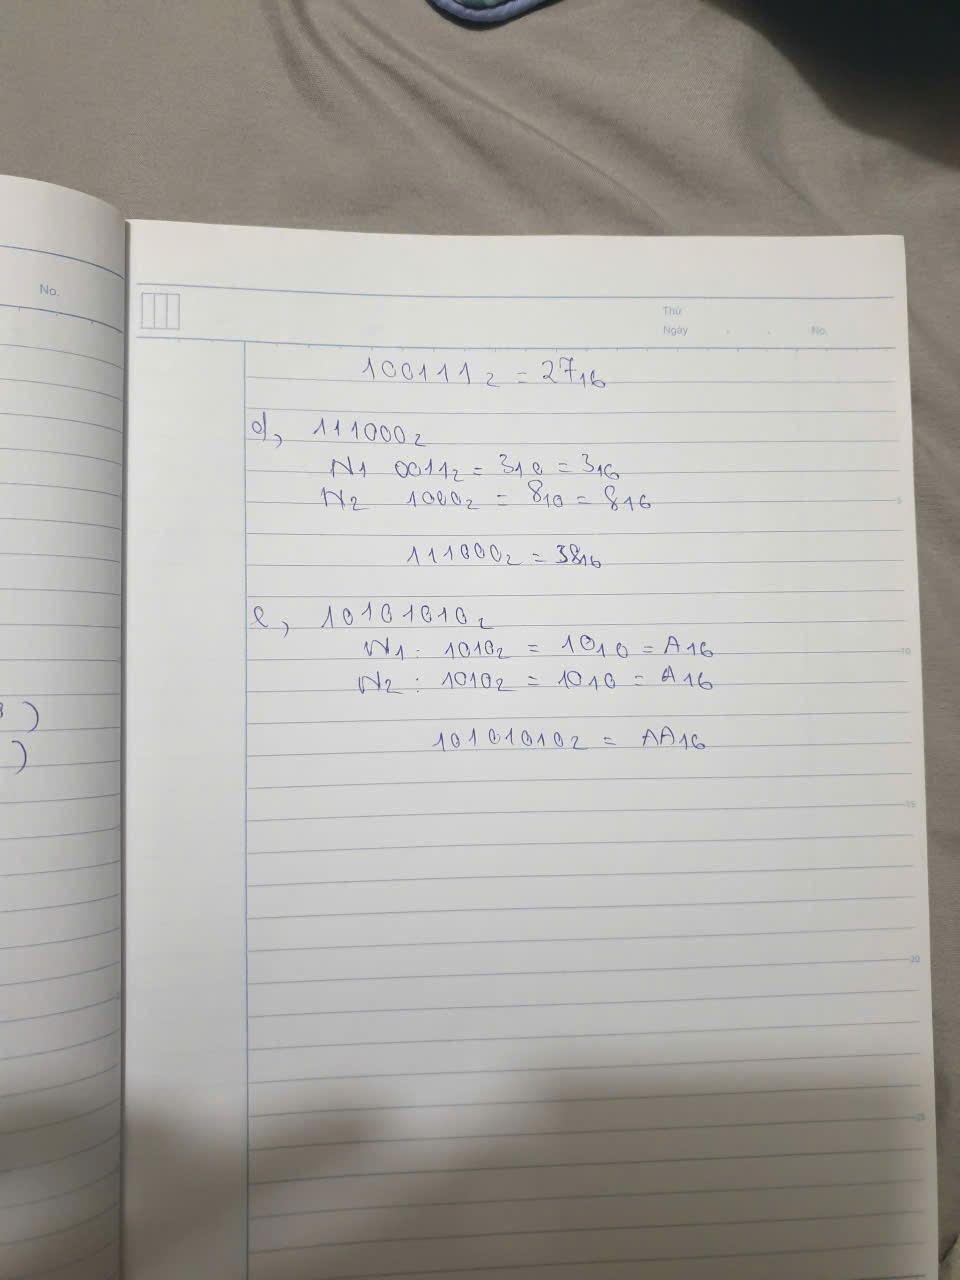 No.
Thứ
Ngày . . No.
100111₂ = 27₁₆
d, 111000₂
N1 0011₂ = 3₁₀ = 3₁₆
N2 1000₂ = 8₁₀ = 8₁₆
5
111000₂ = 38₁₆
e, 10101010₂
N1 : 1010₂ = 10₁₀ = A₁₆
10
N2 : 1010₂ = 10₁₀ = A₁₆
)
10101010₂ = AA₁₆
)
15
20
25